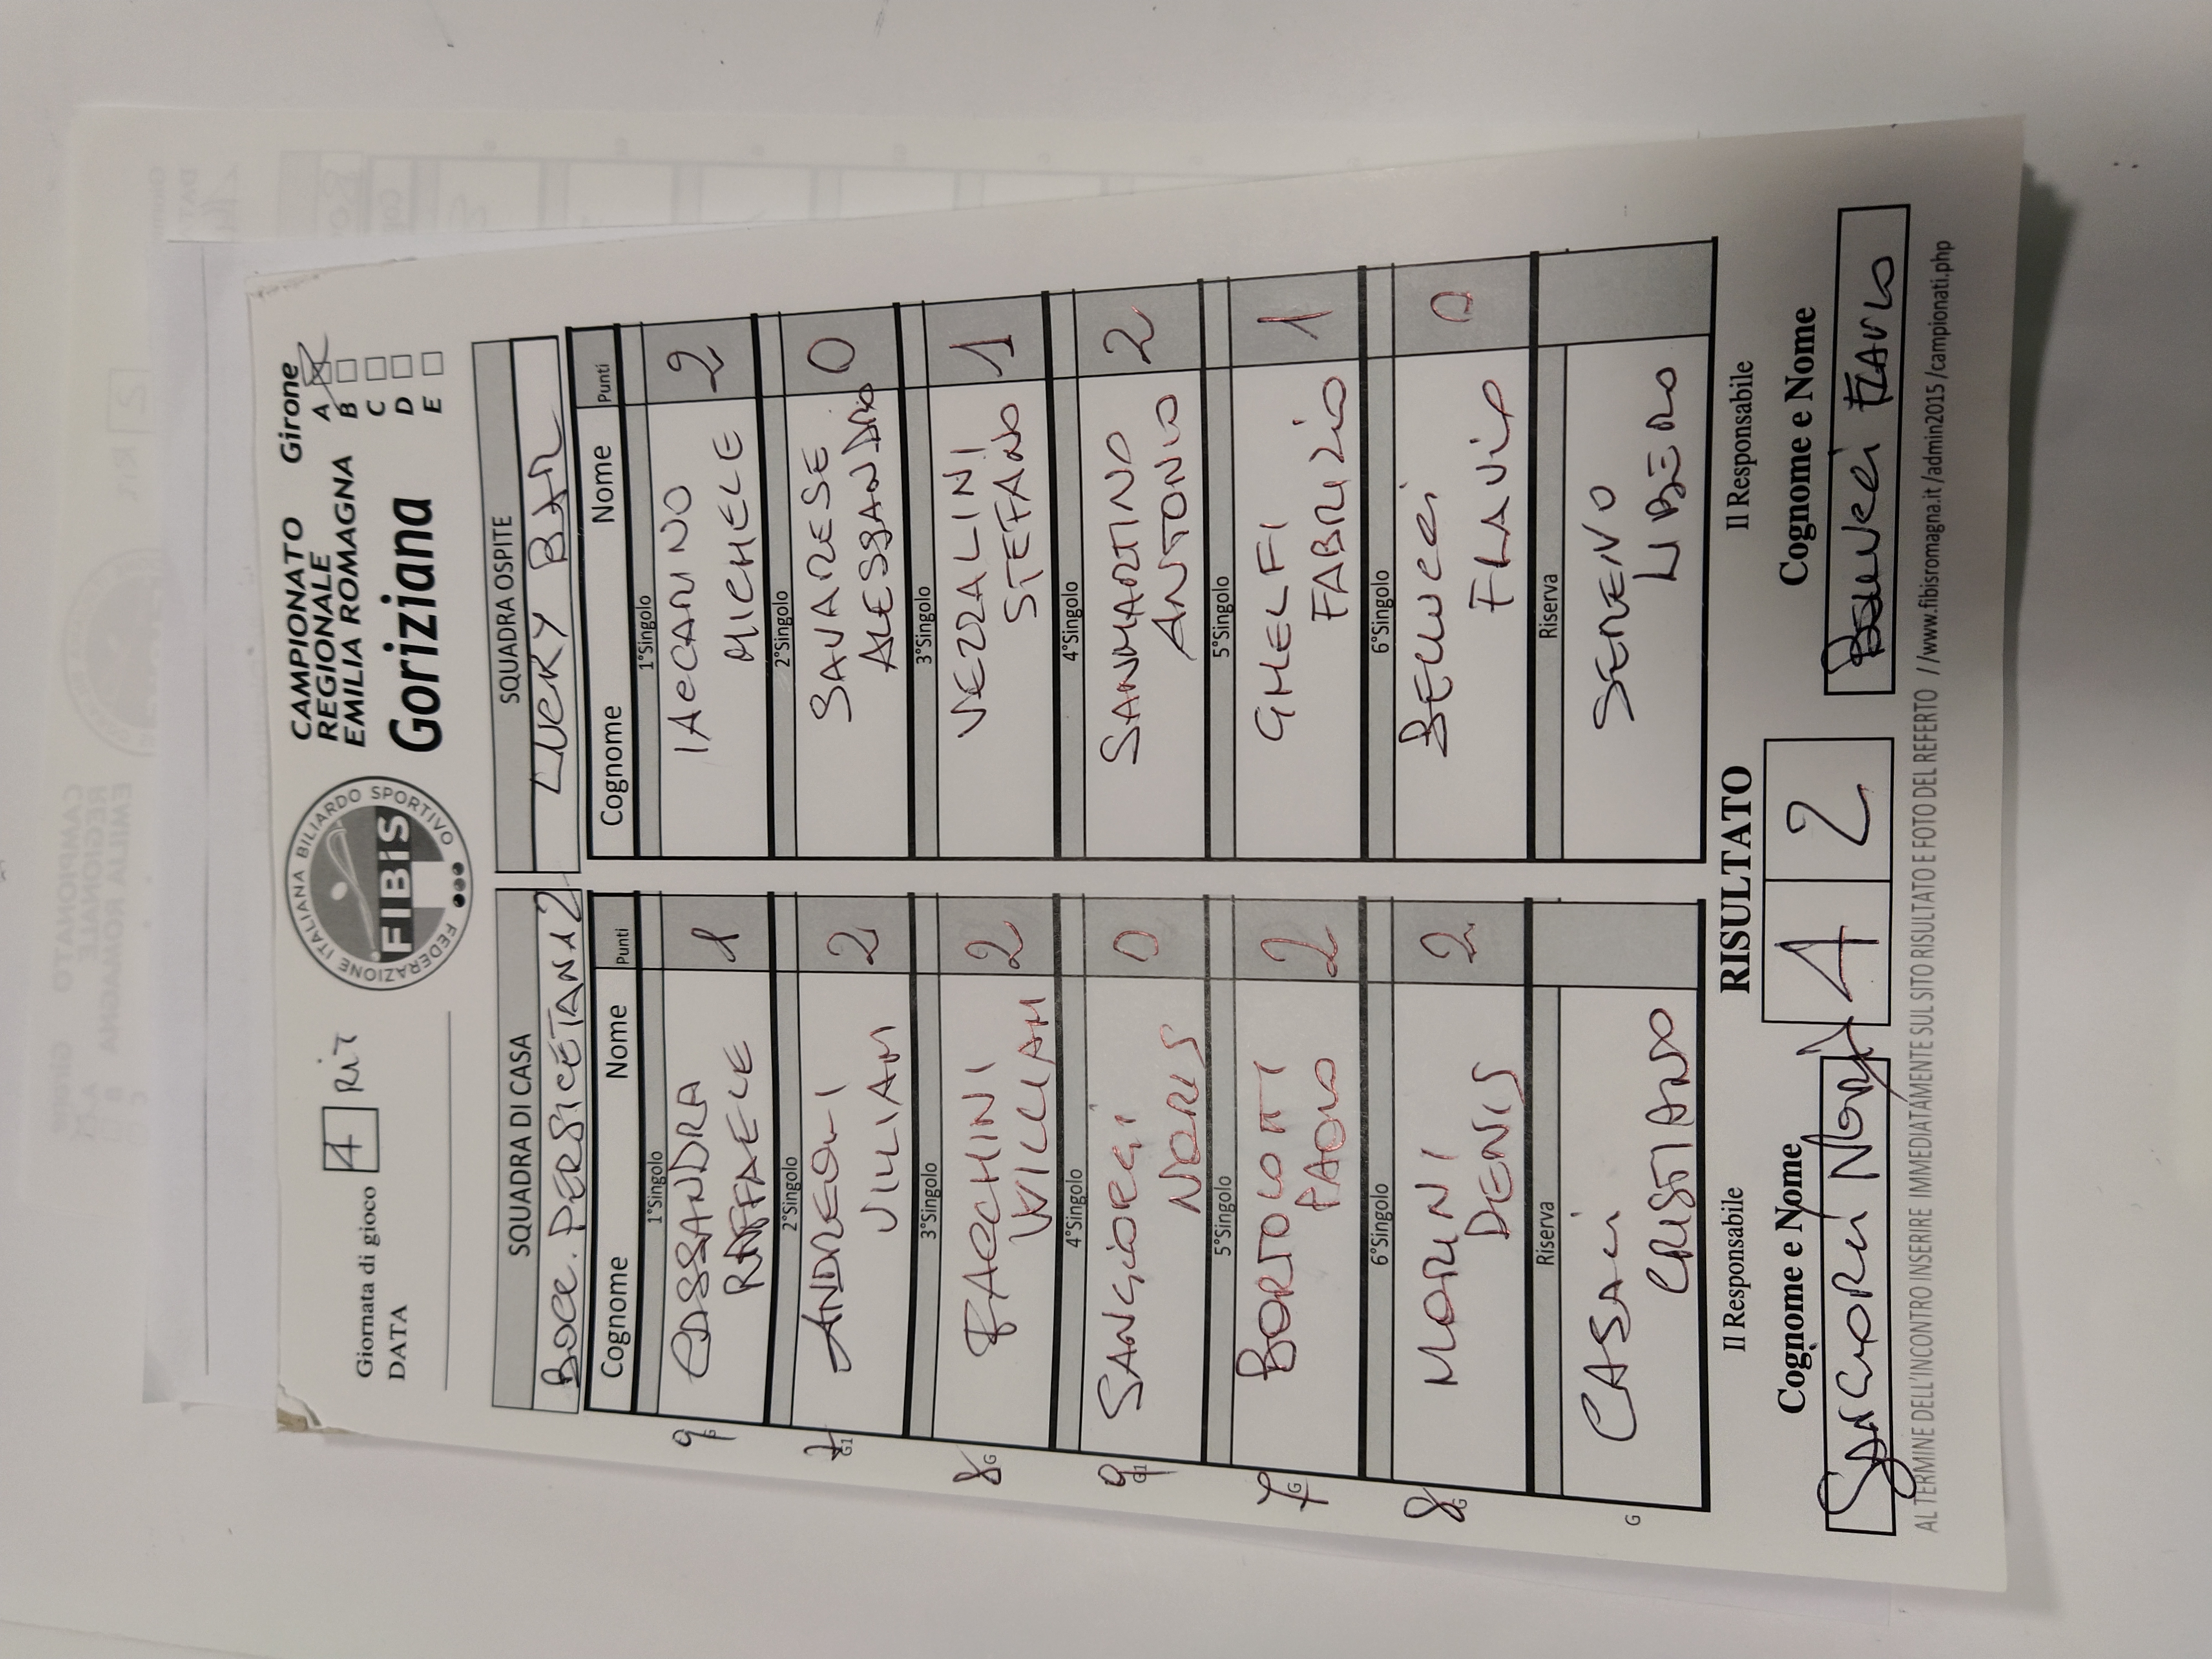 Giornata di gioco 4 RIT
DATA
FEDERAZIONE ITALIANA BILIARDO SPORTIVO
FIBIS
CAMPIONATO
REGIONALE
EMILIA ROMAGNA
Goriziana
Girone
A
B
C
D
E
SQUADRA DI CASA
BOCC. PERSICETANA 2
Cognome Nome Punti
1°Singolo
9 G
CASSANDRA
RAFFAELE 1
2°Singolo
7 G1
ANDREOLI
VILLIAM 2
3°Singolo
8 G
FACCHINI
WILLIAM 2
4°Singolo
9 G1
SANGIORGI
NORIS 0
5°Singolo
7 G
BORTOLOTTI
PAOLO 2
6°Singolo
8 G
MORINI
DENIS 2
Riserva
G
CASINI
CRISTIANO
SQUADRA OSPITE
LUCKY BAR
Cognome Nome Punti
1°Singolo
IACCARINO
MICHELE 2
2°Singolo
SAVARESE
ALESSANDRO 0
3°Singolo
VEZZALINI
STEFANO 1
4°Singolo
SANMARTINO
ANTONIO 2
5°Singolo
GHELFI
FABRIZIO 1
6°Singolo
BELLUCCI
FLAVIO 0
Riserva
SERENO
LIBERO
Il Responsabile
Cognome e Nome
SANGIORGI NORIS
RISULTATO
4 2
Il Responsabile
Cognome e Nome
BELLUCCI FLAVIO
AL TERMINE DELL'INCONTRO INSERIRE IMMEDIATAMENTE SUL SITO RISULTATO E FOTO DEL REFERTO //www.fibisromagna.it/admin2015/campionati.php